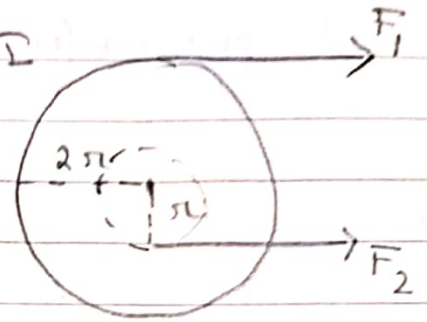 I
F₁
2r
r
F₂